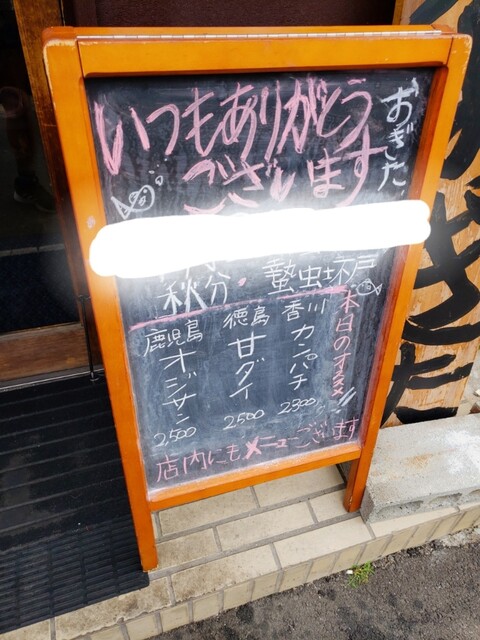 おぎた
いつもありがとう
ございます
秋分・蟄虫坏戸
本日のオススメ!!
香川
カンパチ
2300
徳島
甘ダイ
2500
鹿児島
オジサン
2500
店内にもメニューございます